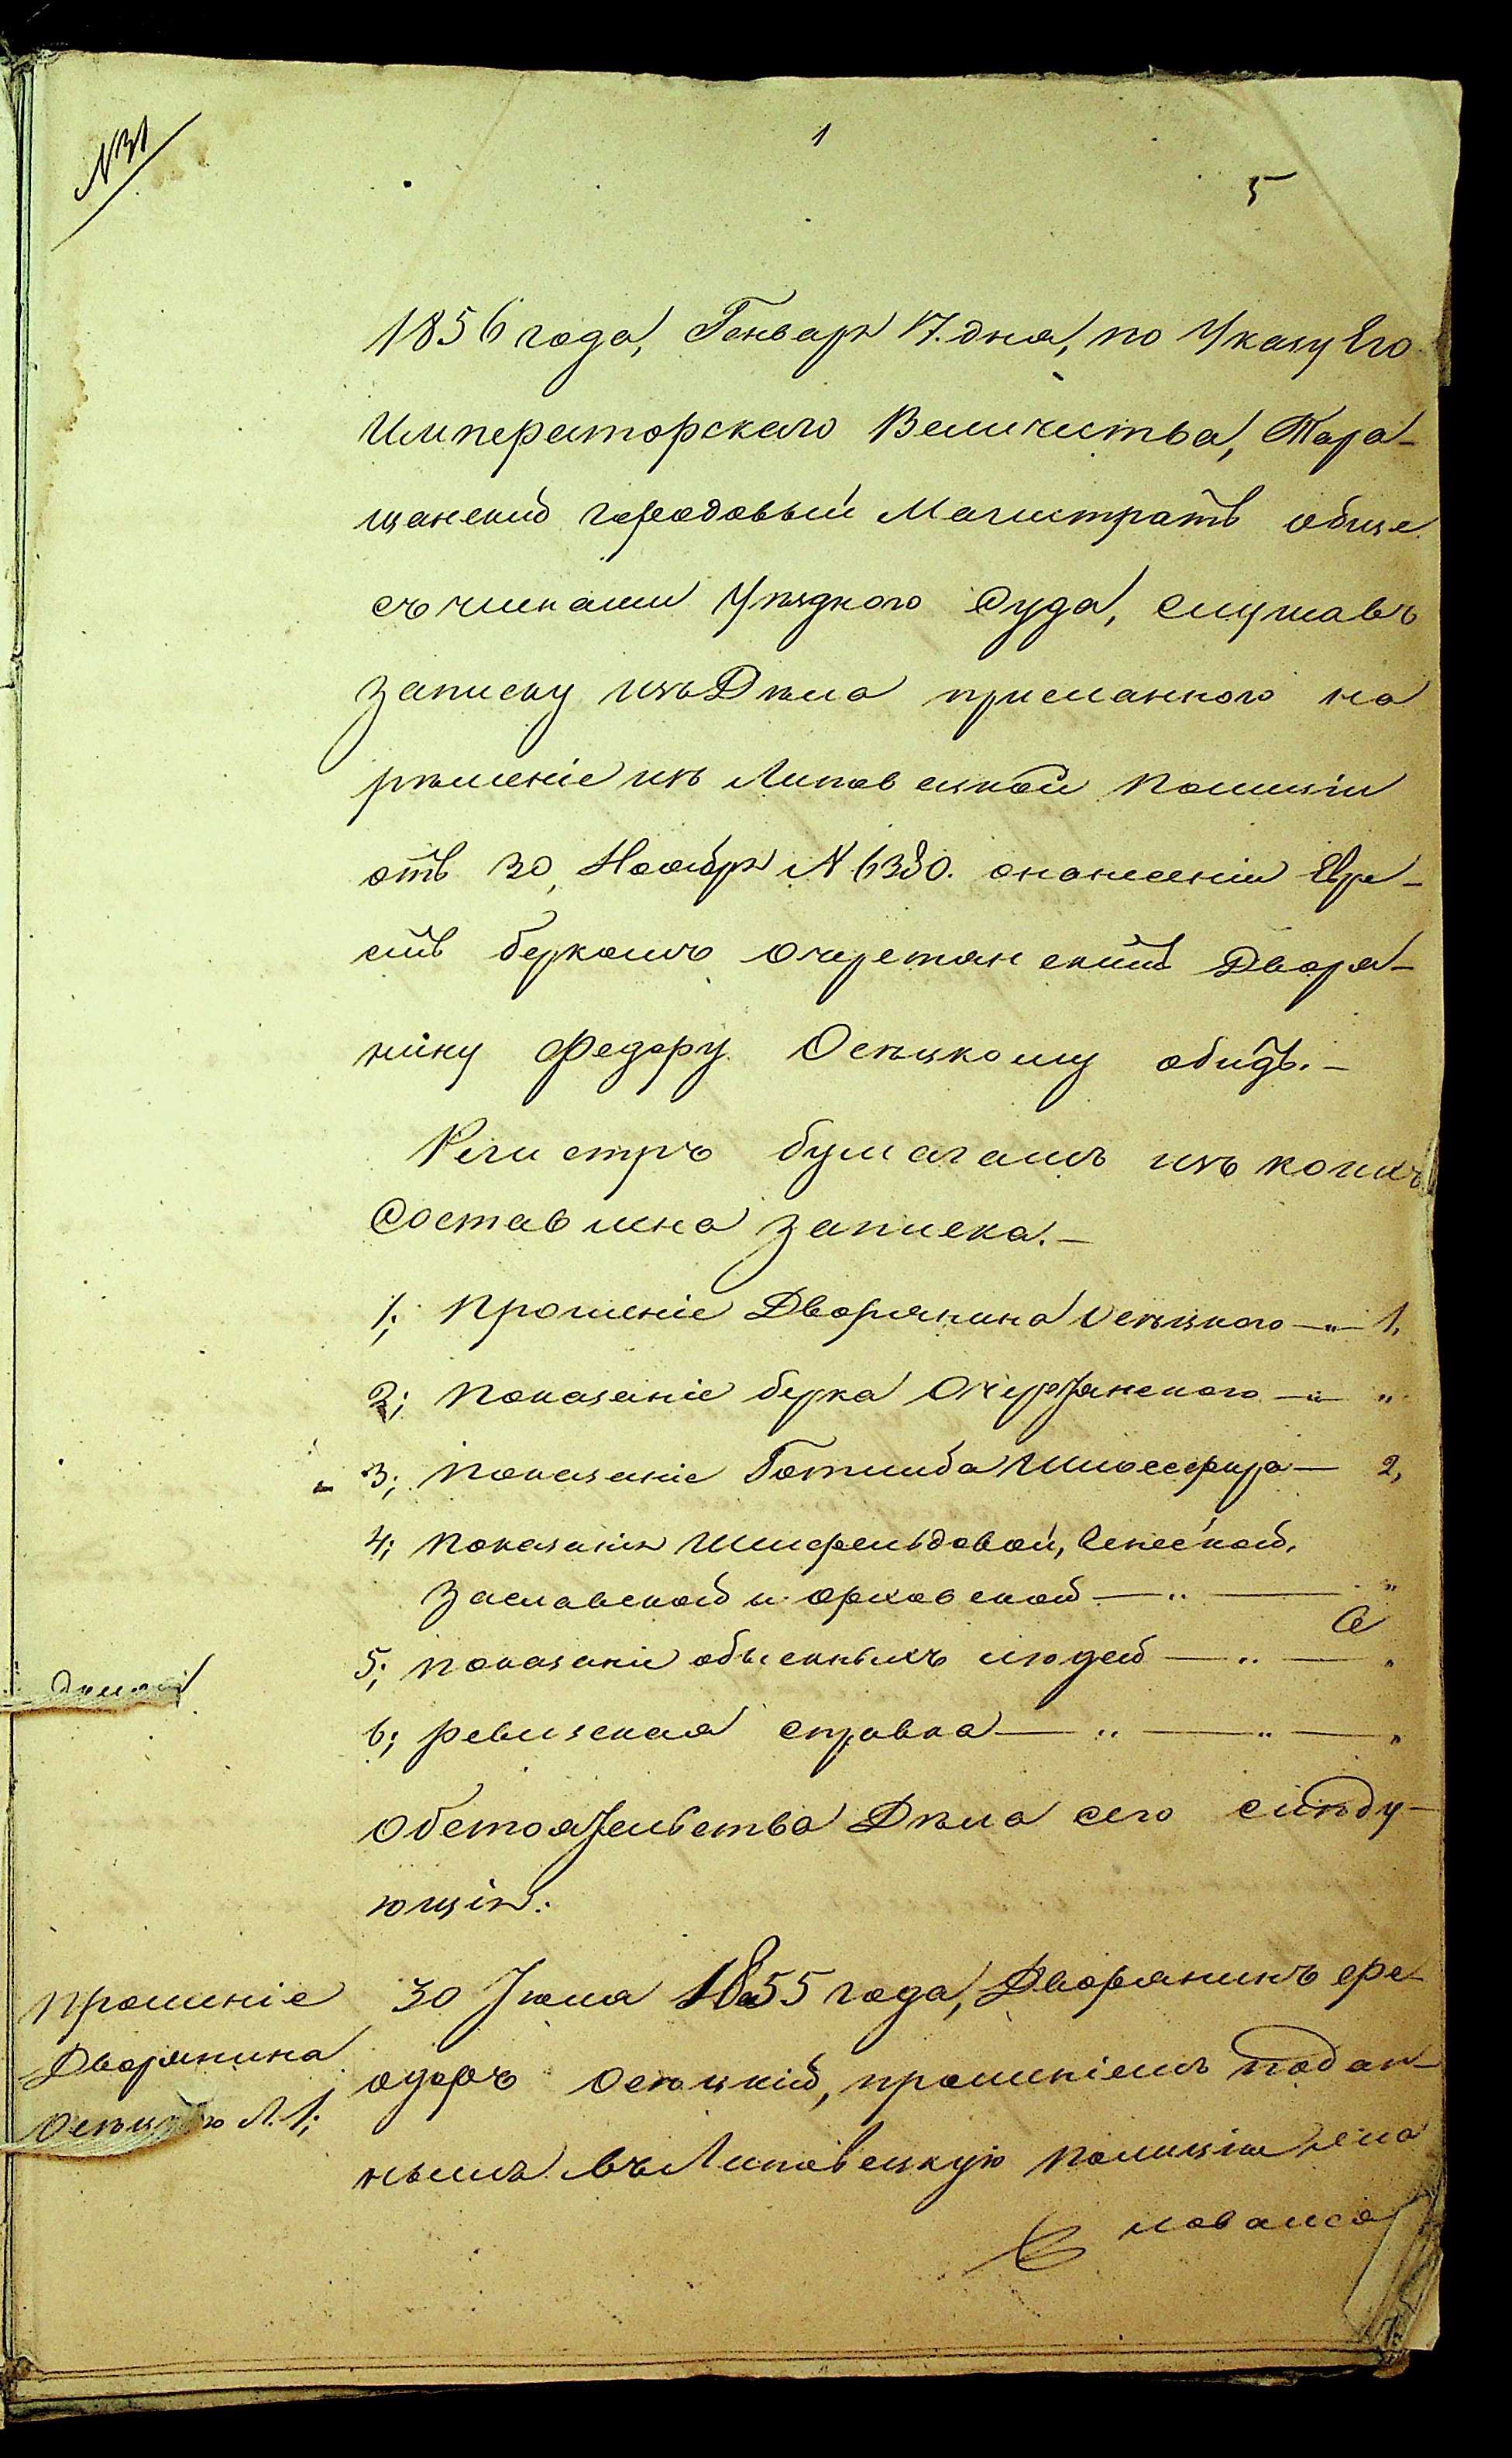 № 31
1
5
1856 года, Генваря 17. дня, по Указу Его
Императорскаго Величества, Тара-
щанский городовый Магистратъ обще
съ чинами Уѣзднаго Суда, слушавъ
записку изъ Дѣла присланного на
рѣшеніе изъ Липовецкой Полиціи
отъ 30, Ноября № 6380. о нанесеніи Евре-
емъ Беркомъ Очеретянскимъ Дворя-
нину Федору Осецкому обидъ.-
Регистръ бумагамъ изъ коихъ
Составлена записка.-
1; Прошеніе Дворянина Осецкого — „ — 1,
2; Показаніе Берка Очеретянского — „ — „
3; Показаніе Готлиба — 2,
4; Показанія Шинфельдовой,
Заславской и Орховской — „ — „
5; Показаніе обыскныхъ людей — „ — „
6; Ревизская справка — „ — „ — „
Обстоятельства Дѣла сего слѣду-
ющія:
Прошеніе
Дворянина
Осецкого Л. 1;
30 Іюля 1855 года, Дворянинъ Фе-
одоръ Осецкій, прошеніемъ подан-
нымъ въ Липовецкую Полицію жа
ловался